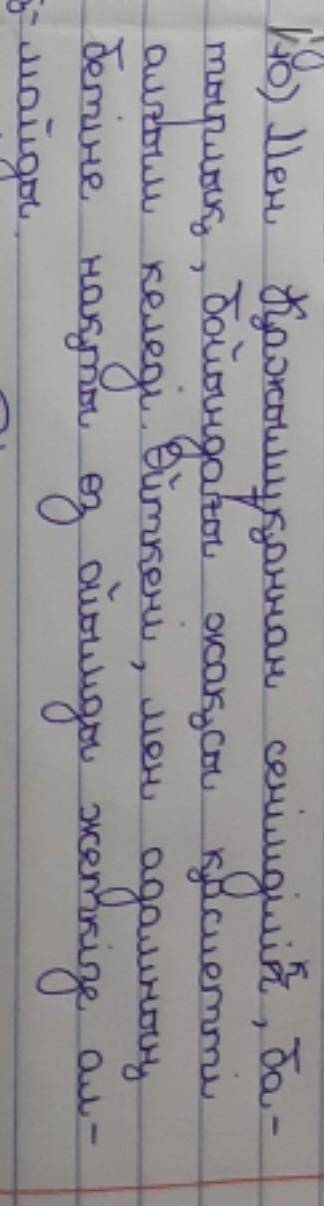 10) Мен Қажымұқаннан сенімділік, ба-
тырлық, бойындағы жақсы қасиетті
алғым келеді. Өйткені, мен адамның
бетіне нақты өз ойымды жеткізе ал-
маймын